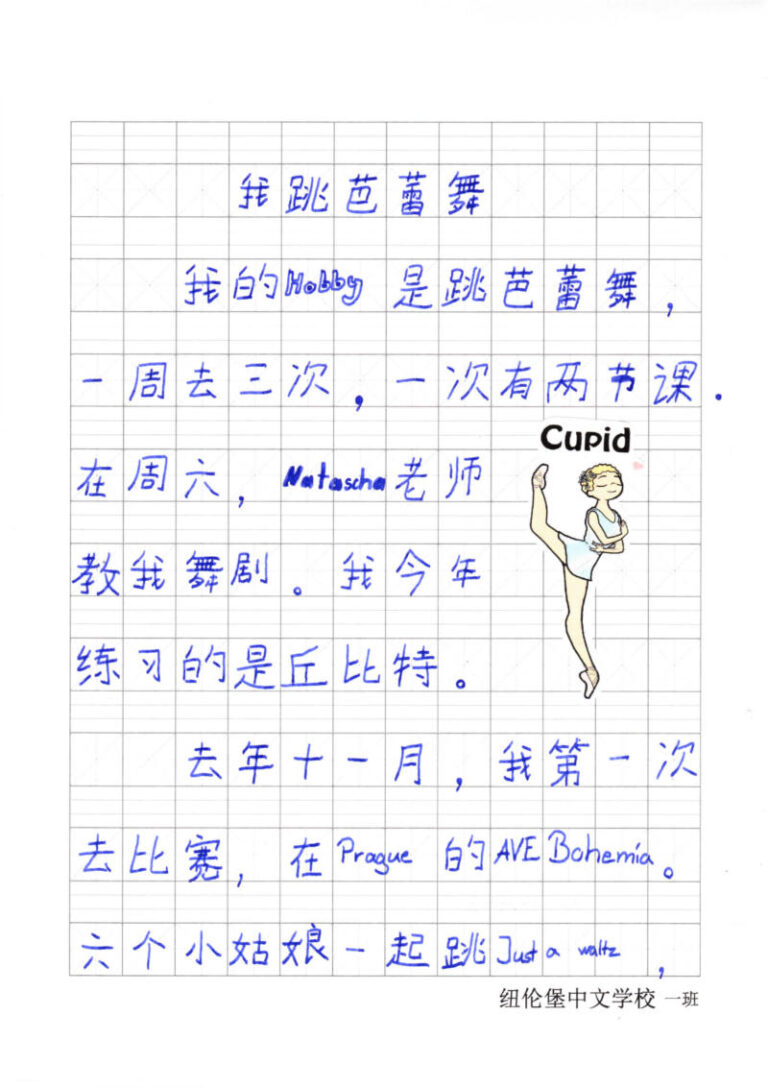 我跳芭蕾舞
我的Hobby 是跳芭蕾舞，
一周去三次，一次有两节课.
Cupid
在周六，Natascha老师
教我舞剧。我今年
练习的是丘比特。
去年十一月，我第一次
去比赛，在Prague 的AVE Bohemia。
六个小姑娘一起跳Just a waltz，
纽伦堡中文学校 一班